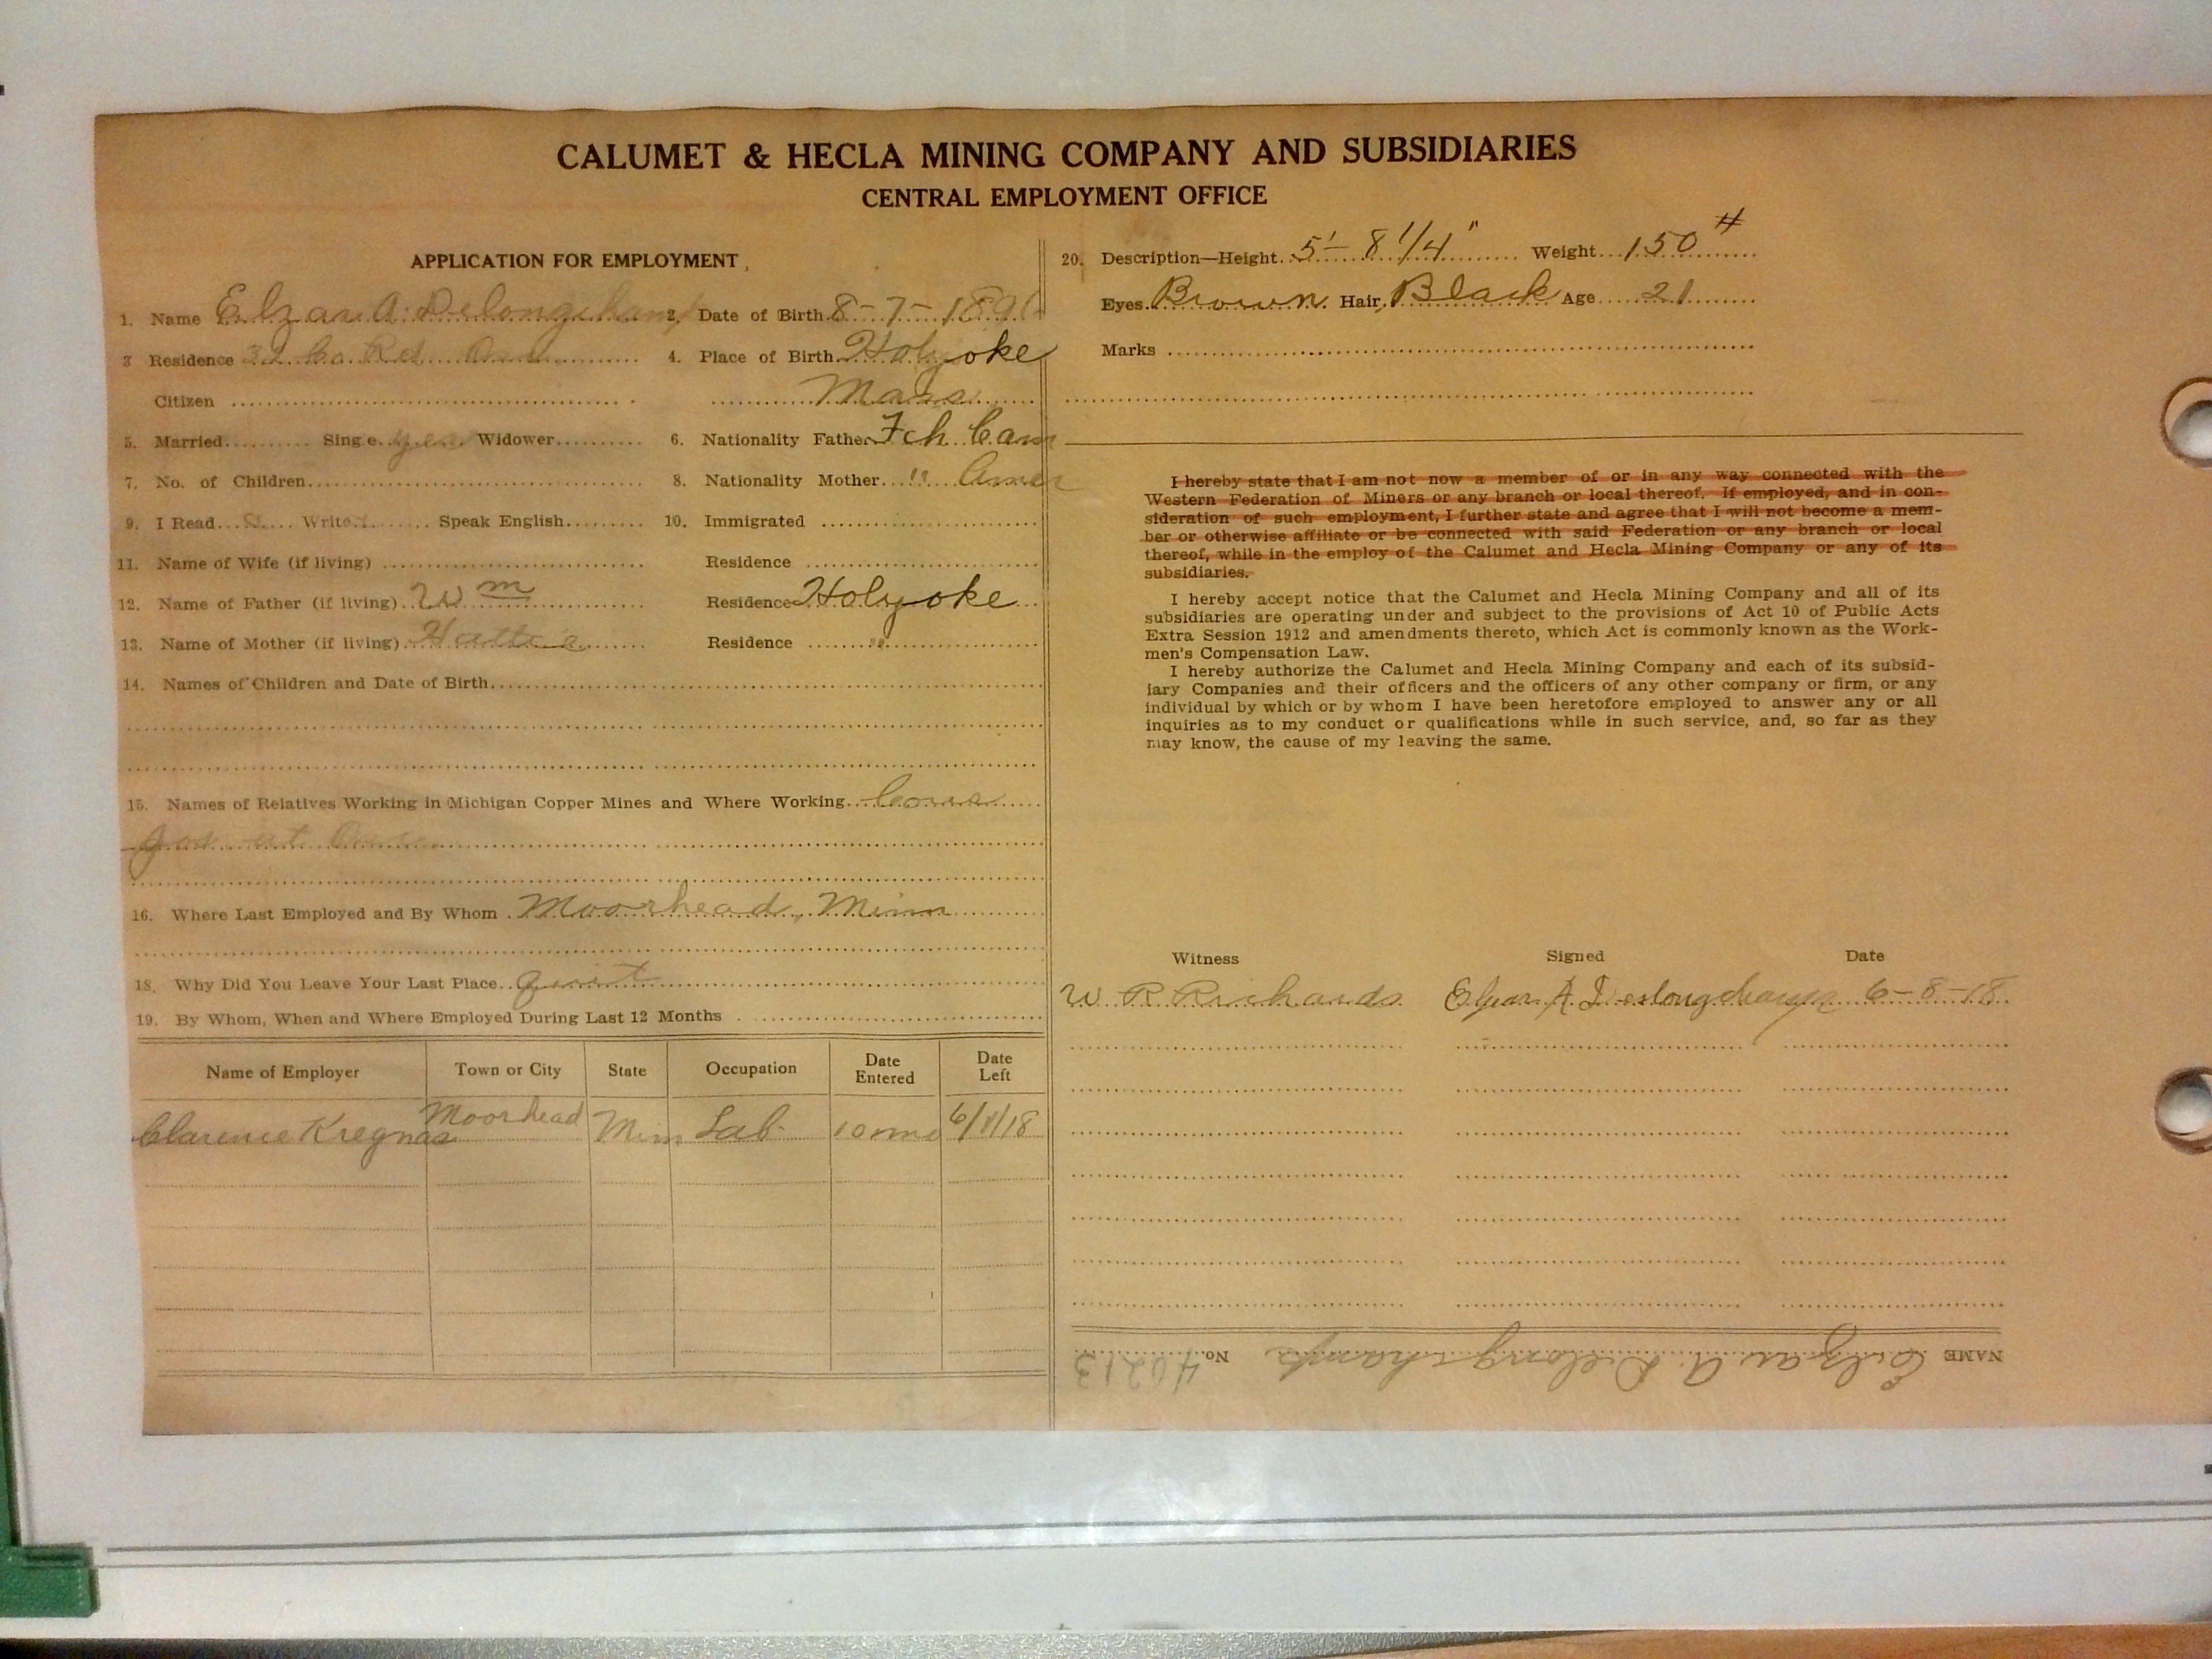 CALUMET & HECLA MINING COMPANY AND SUBSIDIARIES
CENTRAL EMPLOYMENT OFFICE
APPLICATION FOR EMPLOYMENT
1. Name Elzar A. Delongchamp 2. Date of Birth 8-7-189
3 Residence 4. Place of Birth Holyoke
Citizen Mass
5. Married Single yes Widower 6. Nationality Father Fch Can
7. No. of Children 8. Nationality Mother " Amer
9. I Read Write Speak English 10. Immigrated
11. Name of Wife (if living) Residence
12. Name of Father (if living) Wm Residence Holyoke
13. Name of Mother (if living) Hattie Residence "
14. Names of Children and Date of Birth
15. Names of Relatives Working in Michigan Copper Mines and Where Working
at
16. Where Last Employed and By Whom Moorhead, Minn
18. Why Did You Leave Your Last Place quit
19. By Whom, When and Where Employed During Last 12 Months
Name of Employer Town or City State Occupation Date Entered Date Left
Clarence Kregnas Moorhead Minn Lab 10 mo 6/ /18
20. Description—Height 5'- 8 1/4" Weight 150 #
Eyes Brown Hair, Black Age 21
Marks
I hereby state that I am not now a member of or in any way connected with the
Western Federation of Miners or any branch or local thereof. If employed, and in con-
sideration of such employment, I further state and agree that I will not become a mem-
ber or otherwise affiliate or be connected with said Federation or any branch or local
thereof, while in the employ of the Calumet and Hecla Mining Company or any of its
subsidiaries.
I hereby accept notice that the Calumet and Hecla Mining Company and all of its
subsidiaries are operating under and subject to the provisions of Act 10 of Public Acts
Extra Session 1912 and amendments thereto, which Act is commonly known as the Work-
men's Compensation Law.
I hereby authorize the Calumet and Hecla Mining Company and each of its subsid-
iary Companies and their officers and the officers of any other company or firm, or any
individual by which or by whom I have been heretofore employed to answer any or all
inquiries as to my conduct or qualifications while in such service, and, so far as they
may know, the cause of my leaving the same.
Witness Signed Date
W R Richards A Deslongchamps 6-8-18
NAME Elzar A. Delongchamp No. 40213